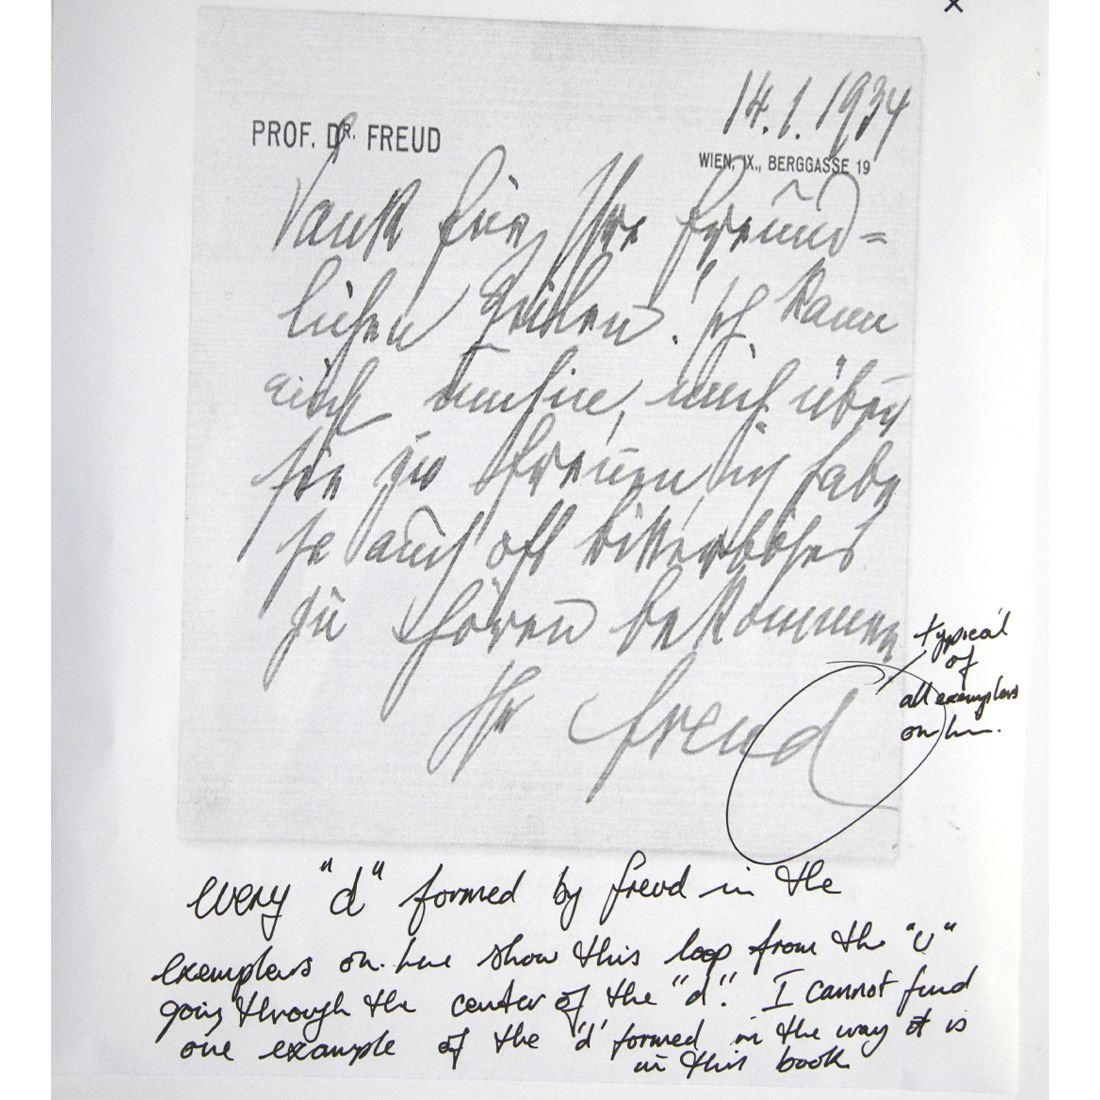 14.1.1934
PROF. DR. FREUD
WIEN, IX., BERGGASSE 19
Dank für Ihre freund=
lichen Zeilen. Ich kann
nicht umhin, mich über
sie zu freuen, ich habe
ja auch oft bitterböses
zu hören bekommen
Ihr Freud
typical
of
all exemplers
on line.
every "d" formed by freud in the
exemplers on-line show this loop from the "u"
going through the center of the "d". I cannot find
one example of the 'd' formed in the way it is
in this book